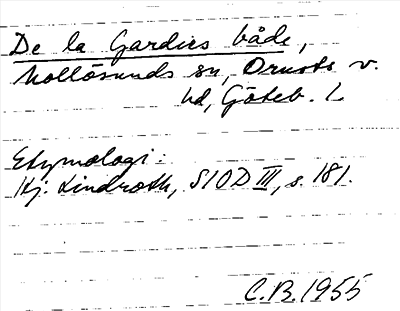 De la Gardies både,
Mollösunds sn, Orusts v.
hd, Göteb. L
Etymologi:
Hj. Lindroth, SIOD III, s. 181.
C.B. 1955